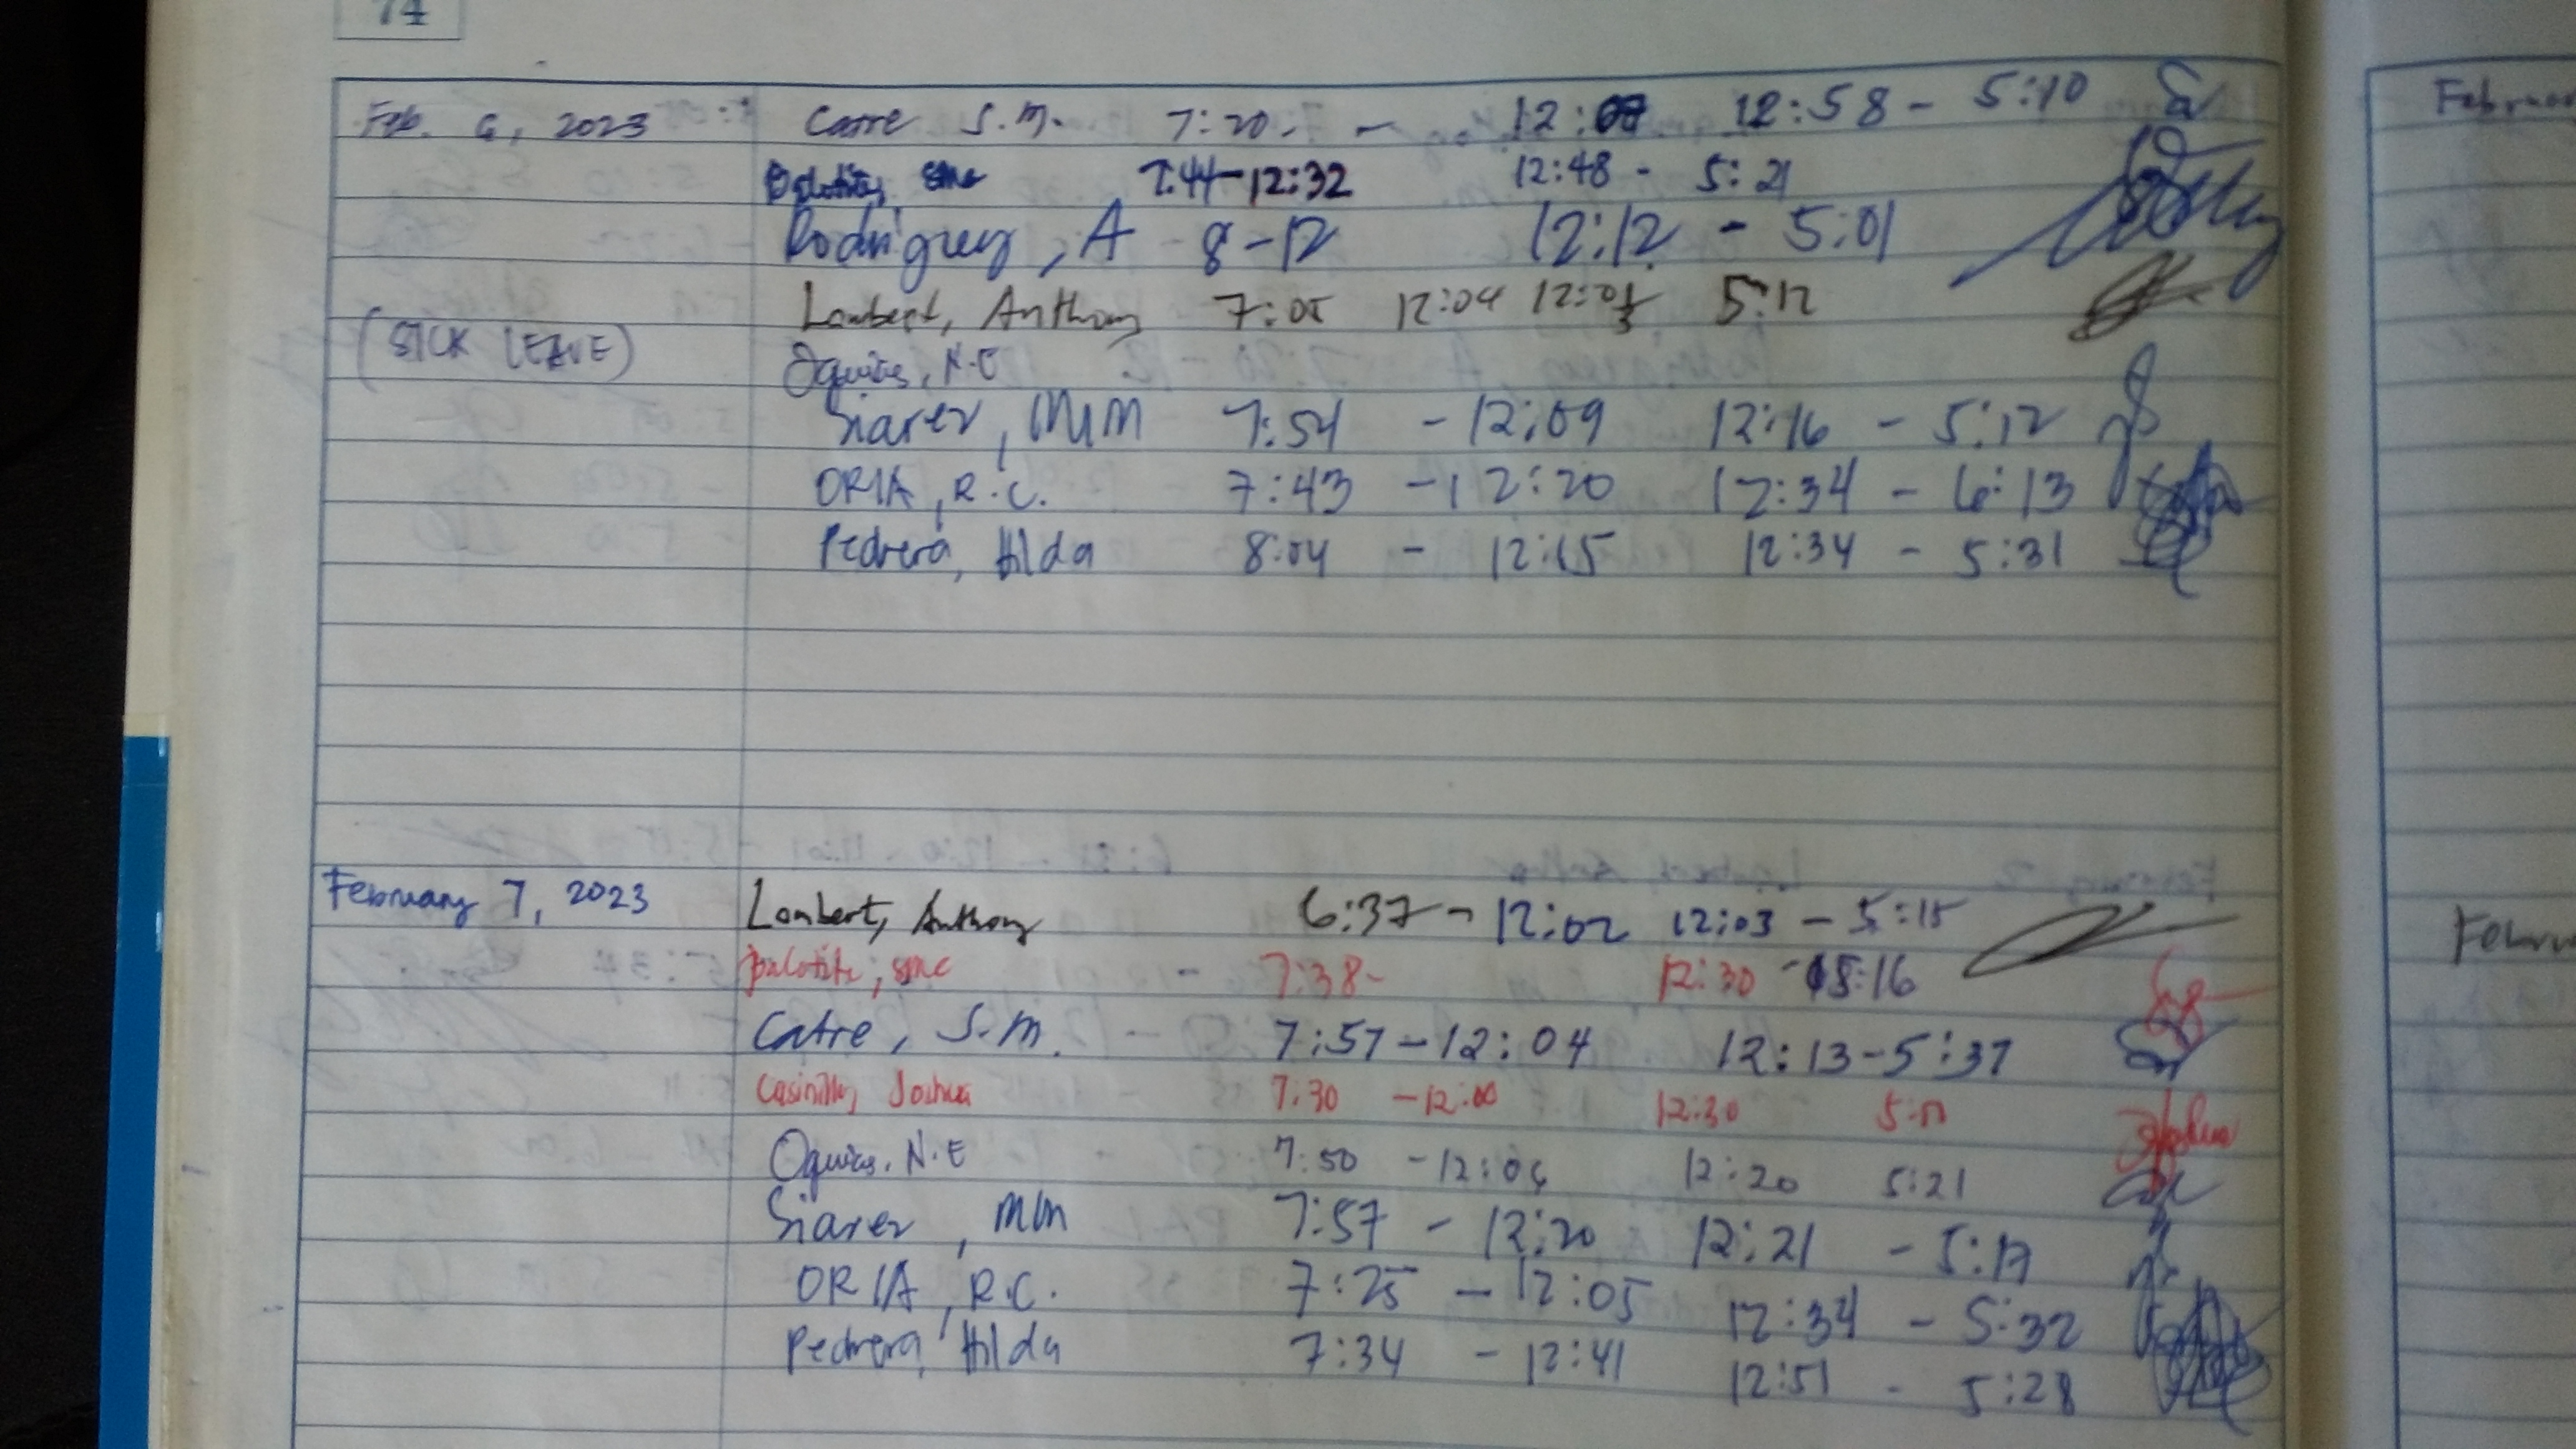 74
Feb. 6, 2023 Catre S.M. 7:20 - 12:07 12:58 - 5:10
7:44-12:32 12:48 - 5:21
Rodriguez, A 8-12 12:12 - 5:01
Lambert, Anthony 7:05 12:04 12:05 5:12
(SICK LEAVE) Oquias, N.E
Siarez, MM 7:54 - 12:09 12:16 - 5:12
ORIA, R.C. 7:43 - 12:20 12:34 - 6:13
Pedrera, Hilda 8:04 - 12:15 12:34 - 5:31
February 7, 2023 Lambert, Anthony 6:37 - 12:02 12:03 - 5:15
7:38- 12:30 - 5:16
Catre, S.M. 7:57-12:04 12:13-5:37
Casinillo, Joshua 7:30 -12:00 12:30 5:11
Oquias, N.E 7:50 -12:06 12:20 5:21
Siarez, MM 7:57 - 12:20 12:21 - 5:17
ORIA, R.C. 7:25 - 12:05 12:34 - 5:32
Pedrera, Hilda 7:34 - 12:41 12:51 - 5:28